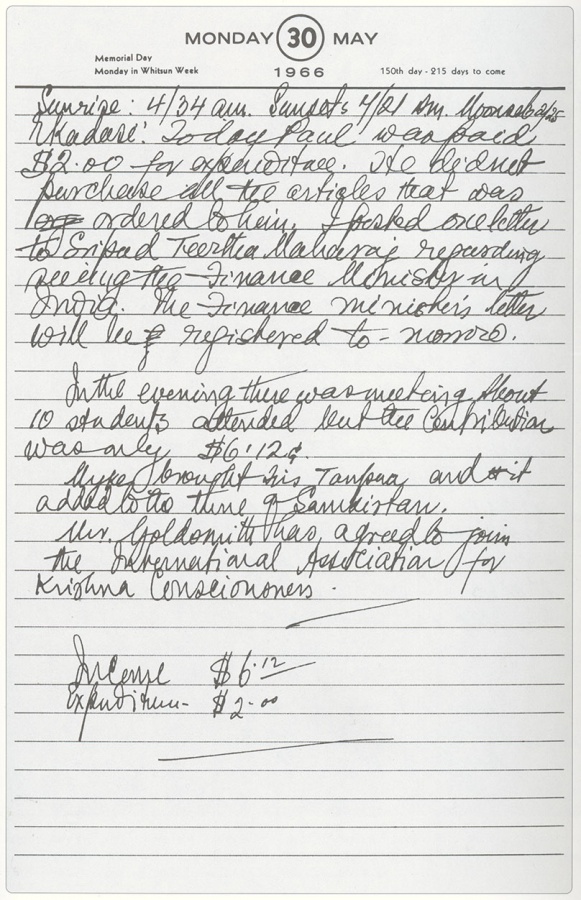 MONDAY 30 MAY
Memorial Day
Monday in Whitsun Week
1966
150th day - 215 days to come
Sunrise: 4/34 am. Sunsets 7/21 pm. Moonset 2/25
Ekadasi: Today Paul was paid
$2.00 for expenditure. He did not
purchase all the articles that was
ordered to him. I posted one letter
to Sripad Teertha Maharaj regarding
seeing the Finance Ministry in
India. The Finance minister's letter
will be registered to-morrow.
In the evening there was meeting. About
10 students attended but the Contribution
was only $6.12¢.
Myke brought his Tanpura and it
added to the tune of Samkirtan.
Mr. Goldsmith has agreed to join
the International Association for
Krishna Consciousness.
Income $6.12
Expenditure- $2.00